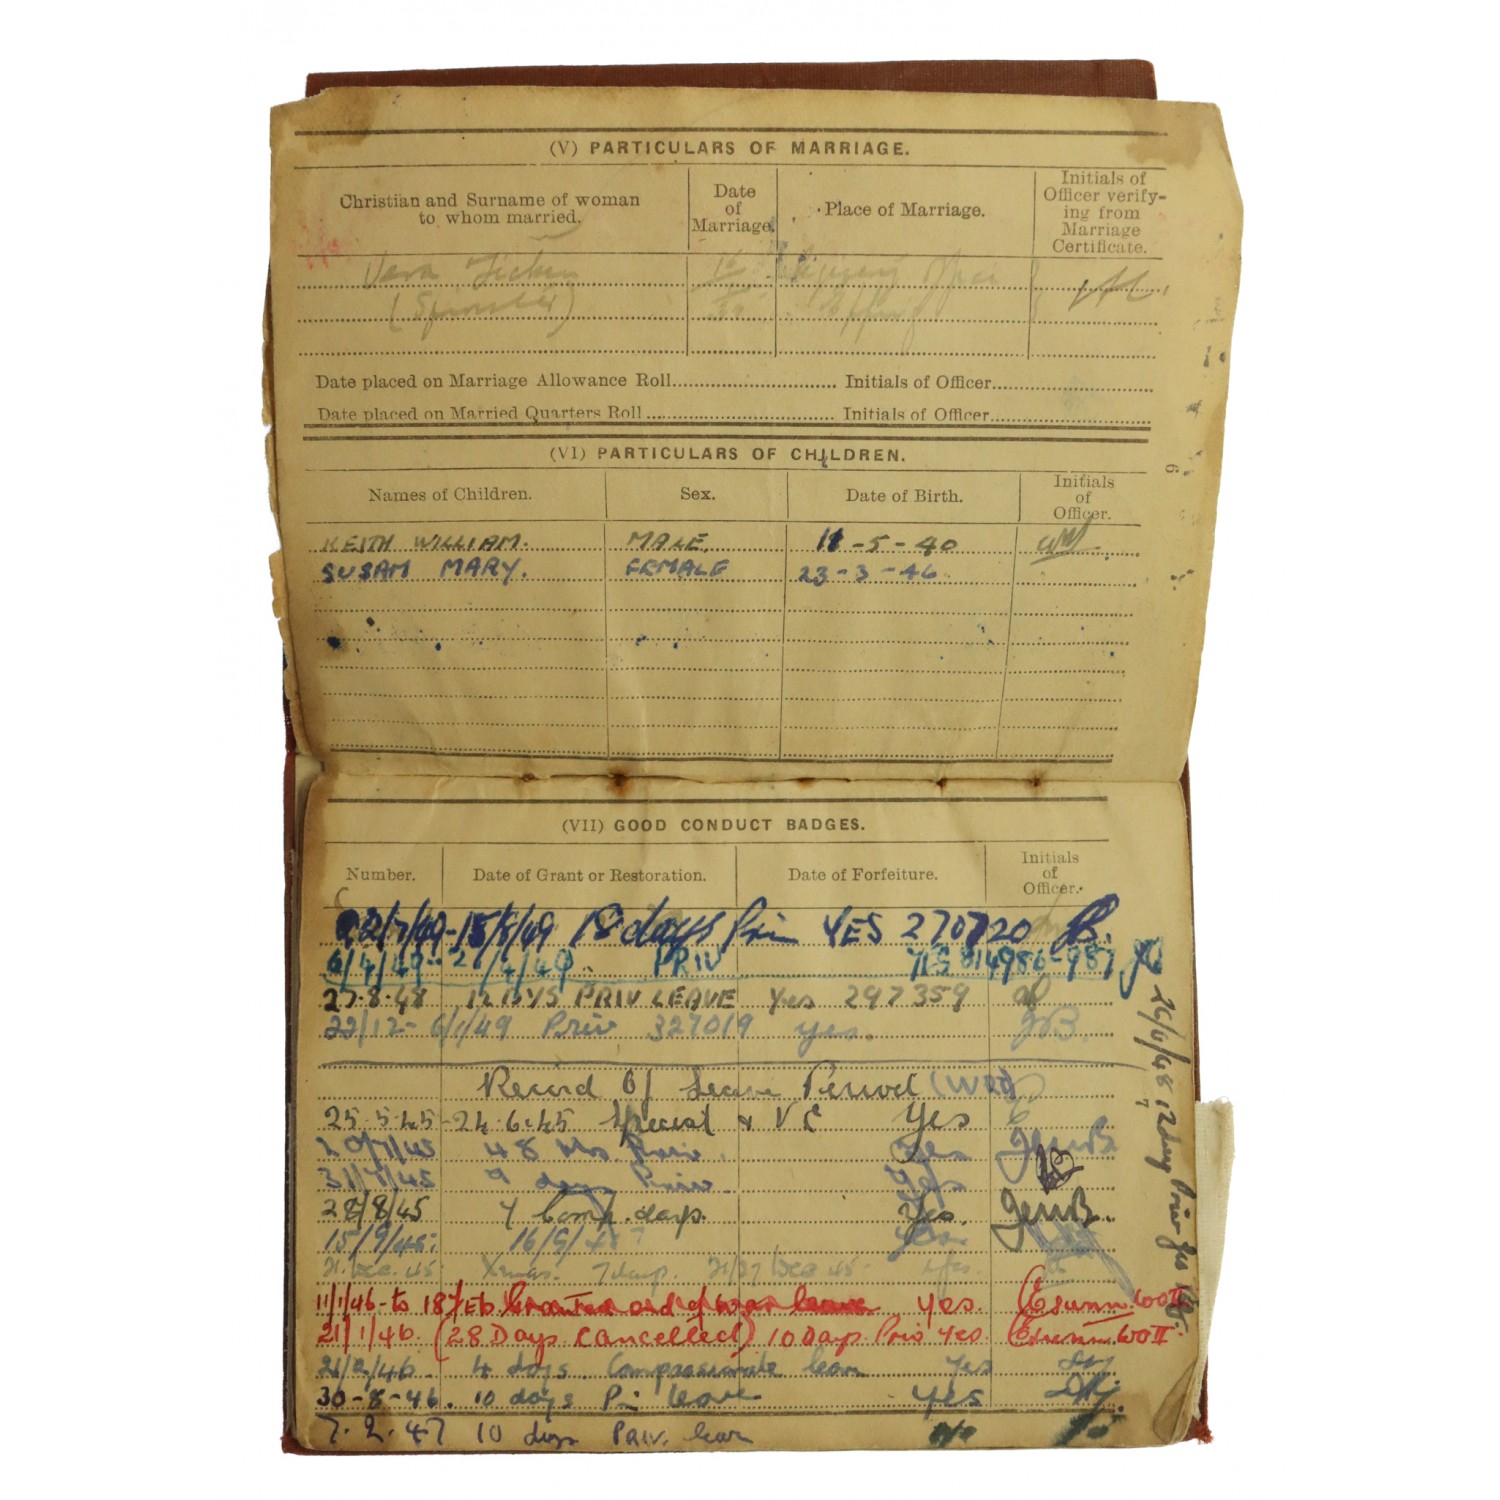 (V) PARTICULARS OF MARRIAGE.
Christian and Surname of woman to whom married.
Date of Marriage.
Place of Marriage.
Initials of Officer verifying from Marriage Certificate.
Vera
(Spinster)
Date placed on Marriage Allowance Roll
Initials of Officer
Date placed on Married Quarters Roll
Initials of Officer
(VI) PARTICULARS OF CHILDREN.
Names of Children.
Sex.
Date of Birth.
Initials of Officer.
KEITH WILLIAM. MALE. 11-5-40
SUSAN MARY. FEMALE 23-3-46
6
(VII) GOOD CONDUCT BADGES.
Number.
Date of Grant or Restoration.
Date of Forfeiture.
Initials of Officer.
/7/49-15/8/49 days YES 270720
6/4/49-21/4/49 PRIV YES 814986-987
27.8.48 12 DYS PRIV LEAVE Yes 297359
22/12-6/1/49 Priv 327019 yes.
Record Of Leave Period
25.5.45-24.6.45 Special & VE Yes
20/7/45 48 Hrs Priv. Yes
31/7/45 9 days Priv. Yes
28/8/45 4 Comp. days. Yes.
15/9/45. 16/9/ Yes.
21. Dec. 45 Xmas. 7 days. 21/27 Dec 45. Yes.
11/1/46 to 18 Feb Granted end of war leave yes. WO II
21/1/46. (28 Days Cancelled) 10 Days Priv Yes. WO II
/46. 4 days Compassionate leave Yes
30-8-46. 10 days Pri leave Yes
7.2.47 10 days PRIV. leave
26/6/48 12 days Priv Yes